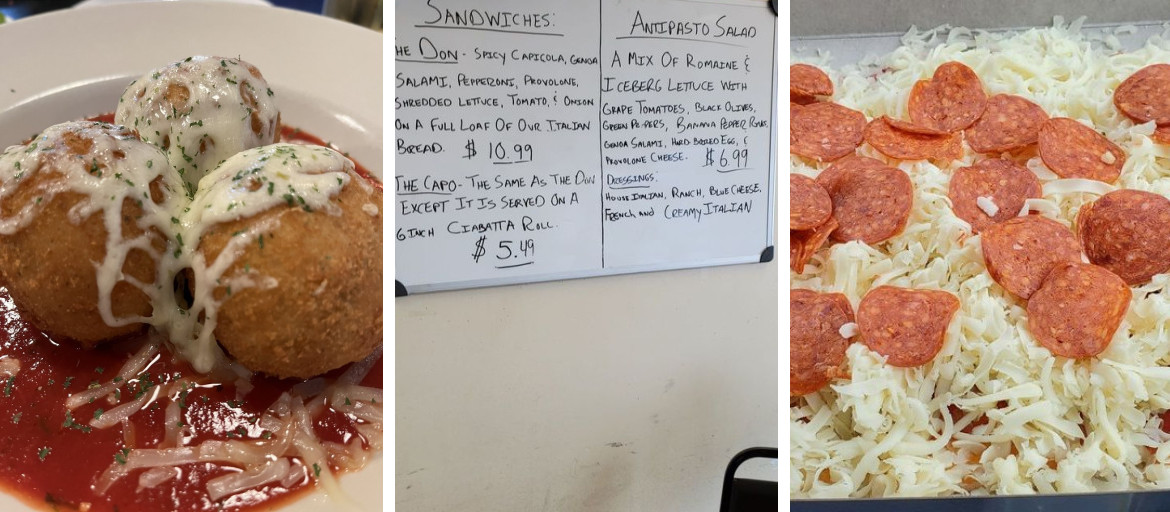 SANDWICHES:
HE DON - SPICY CAPICOLA, GENOA
SALAMI, PEPPERONI, PROVOLONE,
SHREDDED LETTUCE, TOMATO, & ONION
ON A FULL LOAF OF OUR ITALIAN
BREAD. $ 10.99
THE CAPO - THE SAME AS THE DON
EXCEPT IT IS SERVED ON A
6 INCH CIABATTA ROLL.
$ 5.49
ANTIPASTO SALAD
A MIX OF ROMAINE &
ICEBERG LETTUCE WITH
GRAPE TOMATOES, BLACK OLIVES,
GREEN PEPPERS, BANANA PEPPER RINGS,
GENOA SALAMI, HARD BOILED EGG, &
PROVOLONE CHEESE. $6.99
DRESSINGS:
HOUSE ITALIAN, RANCH, BLUE CHEESE,
FRENCH, AND CREAMY ITALIAN